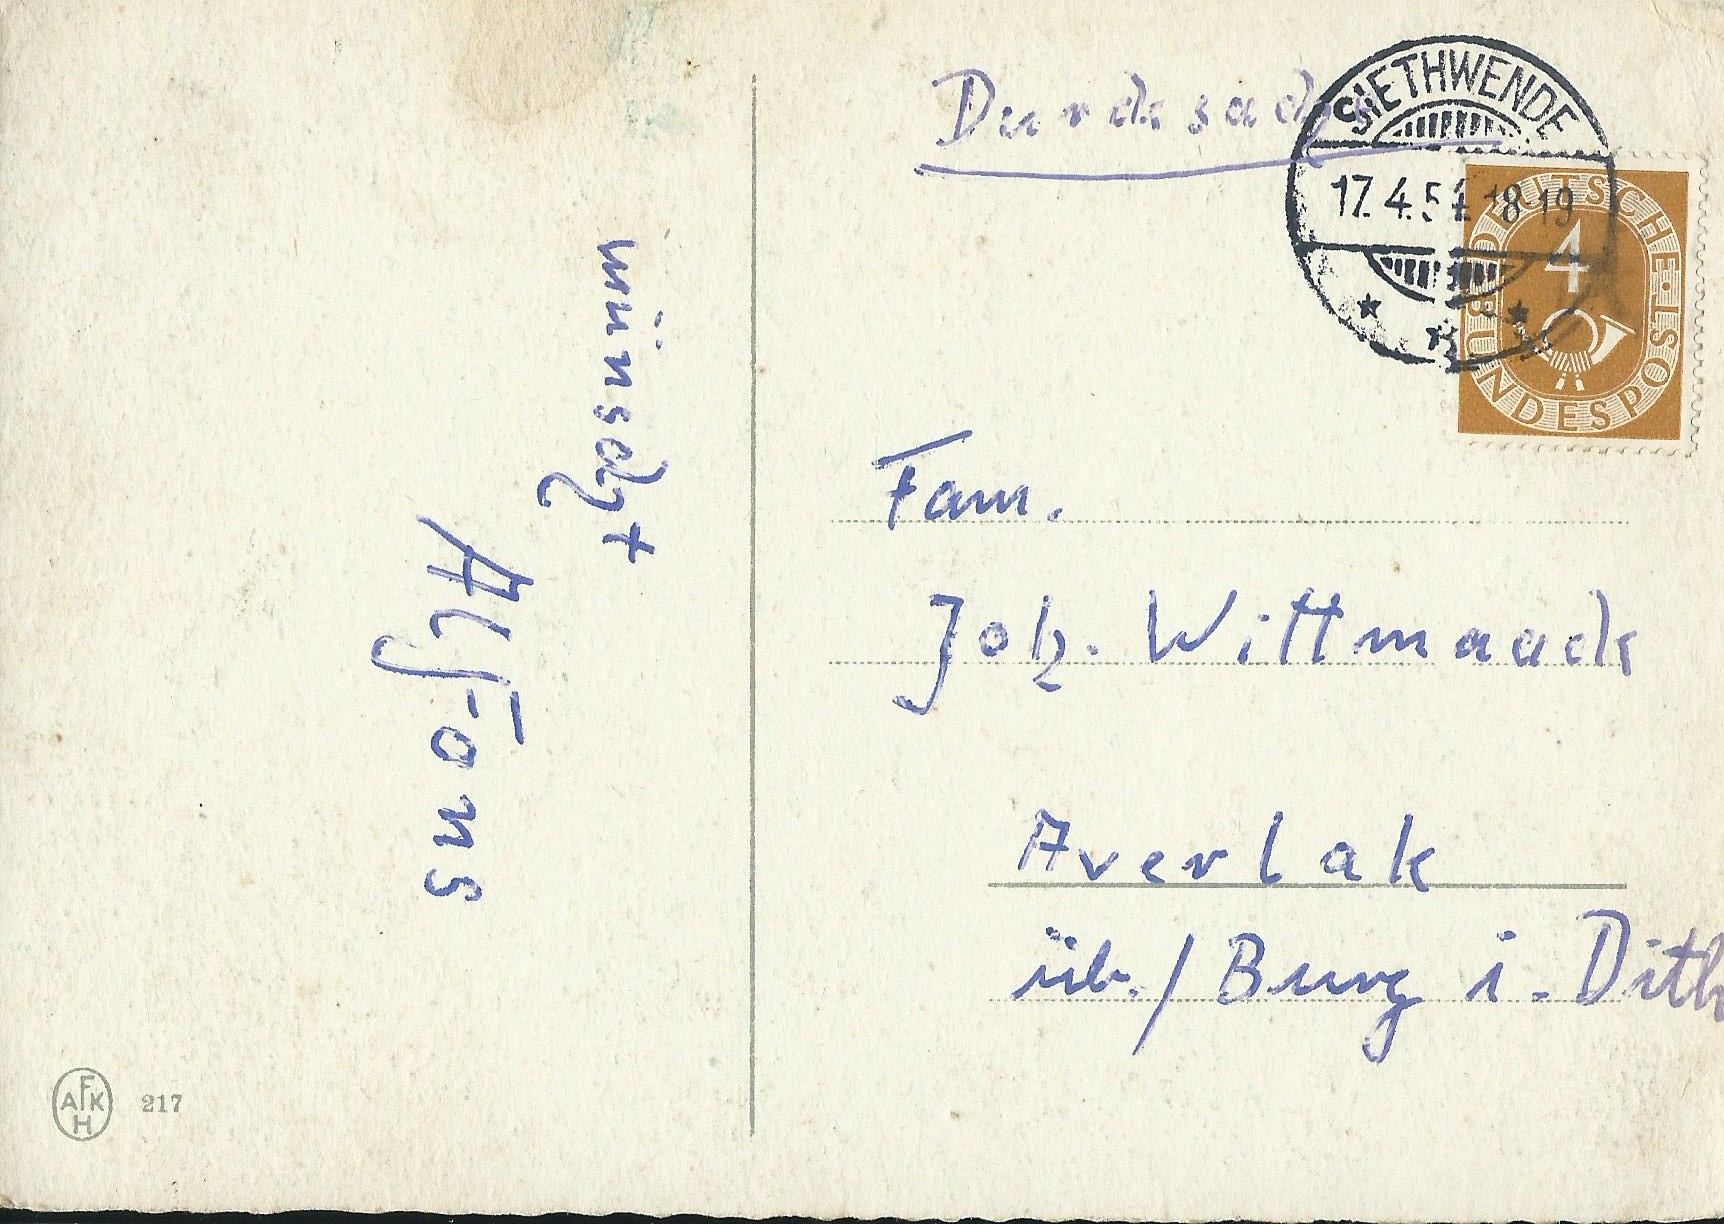 Drucksache
SIETHWENDE
17.4.54 18-19
DEUTSCHE BUNDESPOST
4
wünscht
Alfons
Fam.
Joh. Wittmaack
Averlak
üb./Burg i. Dith
AFKH 217